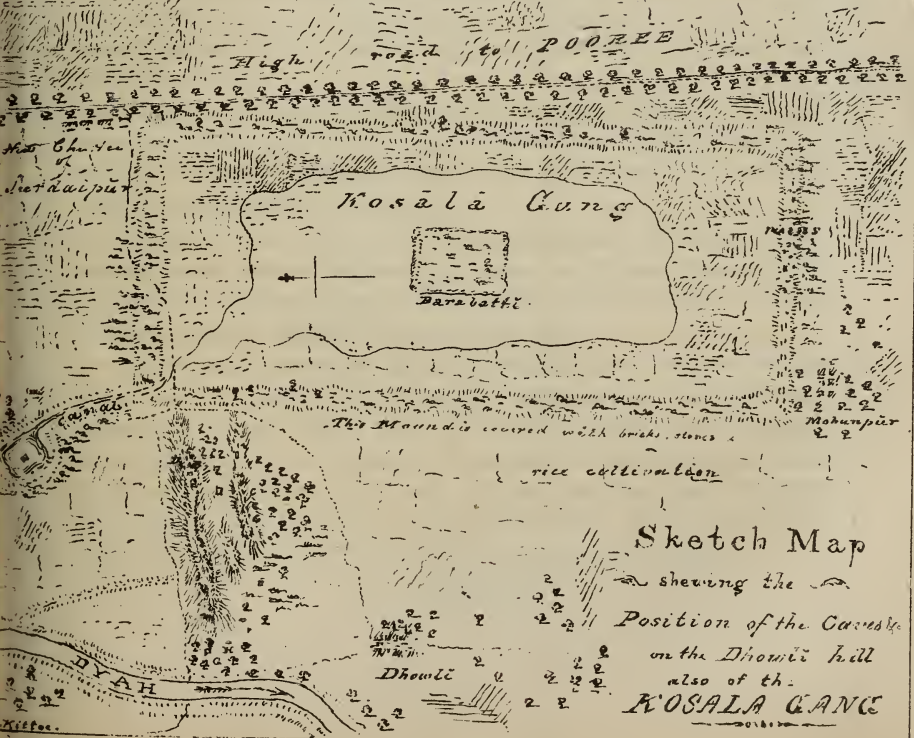 High road to POOREE
of
Kosālā Gung
Barabatti.
Canal
This Mound is covered with bricks, stones &
Mohunpūr
rice cultivation
Sketch Map
shewing the
Position of the Caves &c
on the Dhowlī hill
also of the
KOSALA GANG
Dhowlī
DYAH
Kittoe.